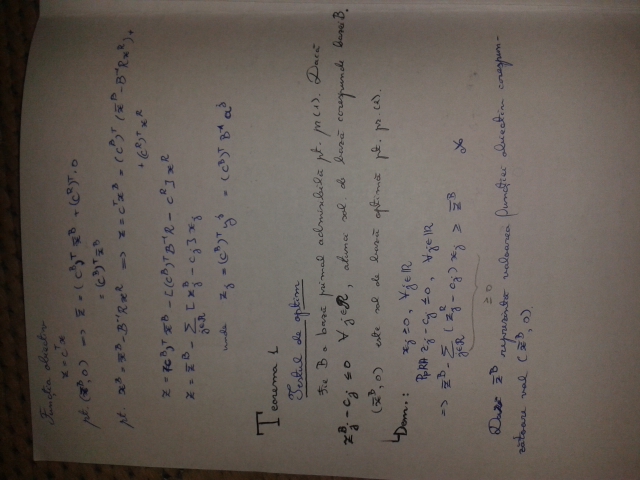 Funcția obiectiv
z = cᵀx
pt. (x̄ᴮ, 0) ⇒ z̄ = (cᴮ)ᵀ x̄ᴮ + (cᴿ)ᵀ·0
= (cᴮ)ᵀ x̄ᴮ
pt. xᴮ = x̄ᴮ - B⁻¹R xᴿ ⇒ z = cᵀxᴮ = (cᴮ)ᵀ (x̄ᴮ - B⁻¹R xᴿ) +
+ (cᴿ)ᵀ xᴿ
z = (cᴮ)ᵀ x̄ᴮ - [(cᴮ)ᵀ B⁻¹R - cᴿ] xᴿ
z = z̄ᴮ - Σ j∈R [zj - cj] xj
unde zj = (cᴮ)ᵀ yj = (cᴮ)ᵀ B⁻¹ aj
Teorema 1
Testul de optim
Fie B o bază primal admisibilă pt. pr. (1). Dacă
zjᴮ - cj ≤ 0 ∀ j∈R, atunci sol. de bază corespunde bazei B.
(x̄ᴮ, 0) este sol. de bază optimă pt. pr. (1).
Dem.:
xj ≥ 0, ∀ j∈R
PpRA zj - cj ≤ 0, ∀ j∈R
⇒ z̄ᴮ - Σ j∈R (zj - cj) xj ≥ z̄ᴮ
≥ 0
Dacă z̄ᴮ reprezintă valoarea funcției obiectiv corespun-
zătoare sol (x̄ᴮ, 0).